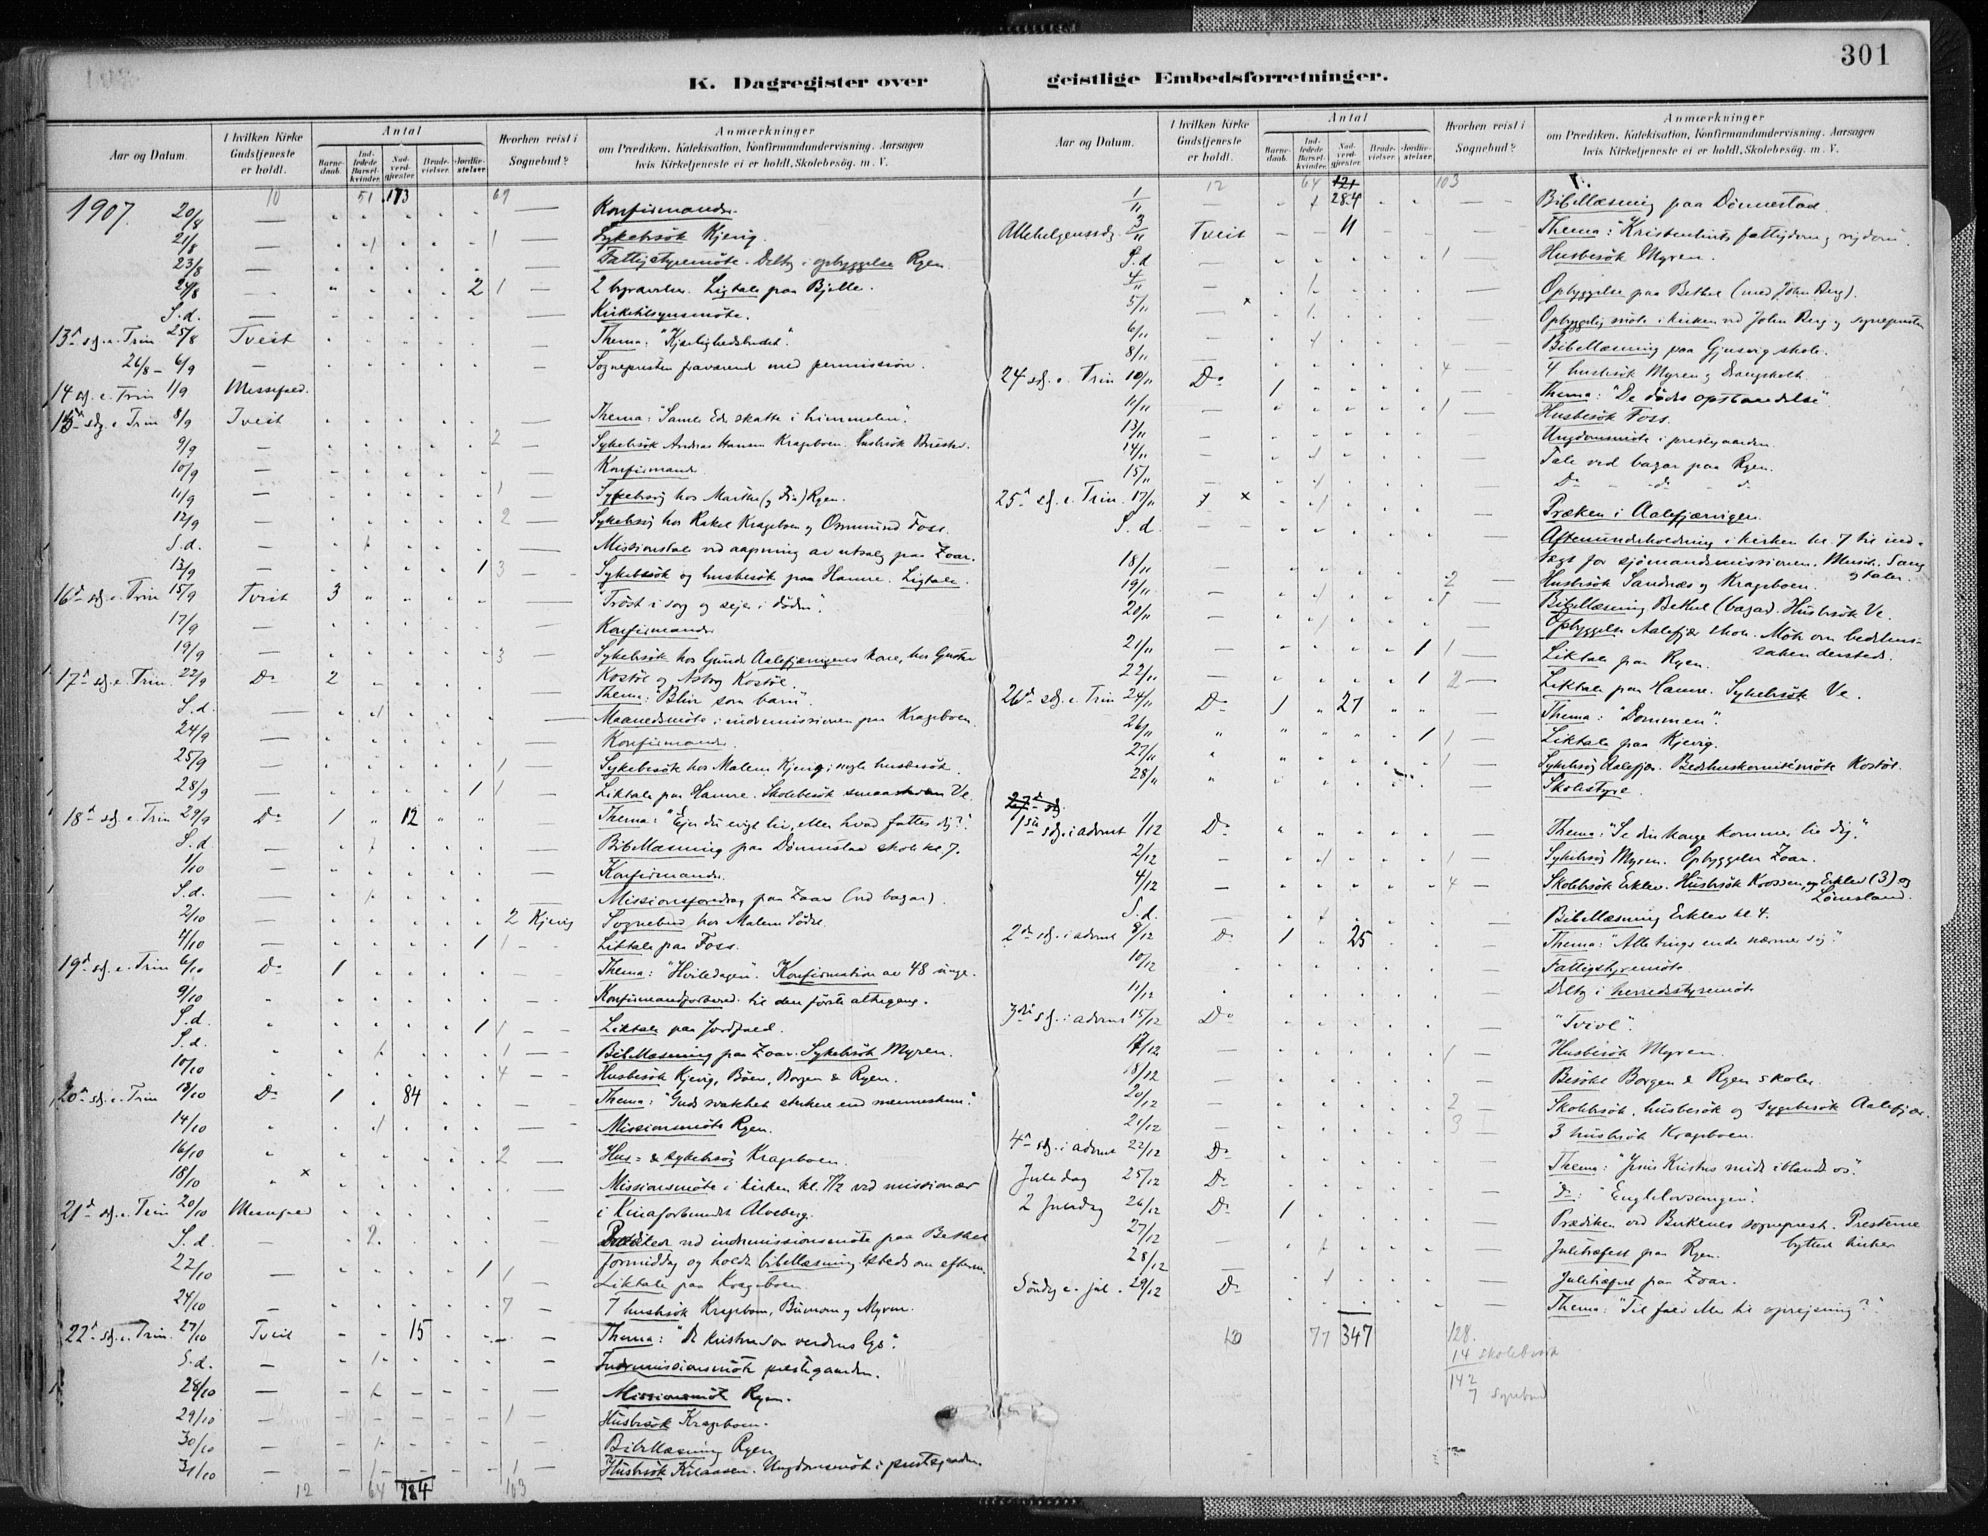 301
K. Dagregister over geistlige Embedsforretninger.
Aar og Datum.
I hvilken Kirke Gudstjeneste er holdt.
Antal
Barnedaab.
Indledede Barselkvinder.
Nadverdgjester.
Brudevielser.
Jordfæstelser
Hvorhen reist i Sognebud?
Anmærkninger
om Prædiken, Katekisation, Konfirmandundervisning, Aarsagen
hvis Kirketjeneste ei er holdt, Skolebesøg. m. V.
10 51 173 69
1907. 20/8 — Konfirmander.
21/8 — 1 — Sykebesök Kjevig.
23/8 — Fattigstyremöte. Deltog i opbyggelse Ryen.
24/8 — 2 1 — 2 begravelser. Ligtale paa Bjelle.
S.d. — Kirketilsynsmöte.
13d sdg. e. Trin 25/8 Tveit Thema: "Kjærlighedsbudet".
26/8 – 6/9 — Sognepresten fraværende med permission.
14 sdg. e. Trin 1/9 Messefald.
15d sdg. e. Trin 8/9 Tveit Thema: "Samle Eder skatte i himmelen".
9/9 — 2 — Sykebesök Andreas Hansen Krageboen. Husbesök
10/9 — Konfirmander
11/9 — 1 — Sykebesög hos Marthe (g Fin) Ryen.
12/9 — 2 — Sykebesög hos Rakel Krageboen og Osmund Foss.
S.d. — Missionstale ved aapning av utsalg paa Zoar.
13/9 — 1 3 — Sykebesök og husbesök paa Hamre. Ligtale.
16d sdg. e. Trin 15/9 Tveit 3 "Tröst i sorg og sejer i döden".
17/9 — Konfirmander
19/9 — 3 — Sykebesök hos Gunde Aalefjærvigens kone, hos
17d sdg. e. Trin. 22/9 Do 2 Kostöl og Kostöl.
Thema: "Bliv som barn"
S.d. — Maanedsmöte i indremissionen paa Krageboen.
24/9 — Konfirmander.
25/9 — 1 — Sykebesök hos Malene Kjevig; nogle husbesök.
28/9 — 1 1 — Liktale paa Hamre. Skolebesök smaaskolen Ve.
18d sdg. e. Trin 29/9 Do 1 12 Thema: "Ejer du evigt liv, eller hvad fattes dig?".
S.d. Bibellæsning paa Dönnestad skole kl. 7.
1/10 Konfirmander.
S.d. Missionsforedrag paa Zoar (ved bazar).
2/10 — 2 Kjevig Sognebud hos Malene
4/10 — 1 1 — Liktale paa Foss.
19d sdg. e. Trin 6/10 Do 1 Thema: "Hviledagen". Konfirmation av 48 unge.
9/10 Konfirmandforbered. til den förste altergang.
S.d. 1 1 — Liktale paa Jordfald.
S.d. 1 — Bibellæsning paa Zoar. Sykebesök Myren.
10/10 4 — Husbesök Kjevig, Böen, Borgen & Ryen.
20d sdg. e. Trin 13/10 Do 1 84 Thema: "Guds svakhet sterkere end menneskene".
14/10 Missionsmöte Ryen.
16/10 2 — Hus- & sykebesög Krageboen.
18/10 × Missionsmöte i kirken kl. 7 1/2 ved missionær
21d sdg. e. Trin 20/10 Messefald i Kinaforbundet Alveberg.
S.d. 2 Prædikede ved indremissionsmöte paa Bethel
formiddag og holdt bibellæsning steds om efterm.
22/10 — 1 1 Liktale paa Krageboen
24/10 — 7 — 7 husbesök Krageboen, Buman og Myren.
22d sdg. e. Trin. 27/10 Tveit 15 — Thema: "De kristne som verdens lys".
S.d. — Indremissionsmöte prestegaarden.
28/10 — Missionsmöte Ryen.
29/10 — 1 — Husbesök Krageboen.
30/10 — Bibellæsning Ryen
31/10 — 1 — Husbesök Ungdomsmöte i prestegaarden
12 64 284 103
Aar og Datum.
I hvilken Kirke Gudstjeneste er holdt.
Antal
Barnedaab.
Indledede Barselkvinder.
Nadverdgjester.
Brudevielser.
Jordfæstelser
Hvorhen reist i Sognebud?
Anmærkninger
om Prædiken, Katekisation, Konfirmandundervisning, Aarsagen
hvis Kirketjeneste ei er holdt, Skolebesög. m. V.
12 64 121 103
1/11 — 284 — Bibellæsning paa Dönnestad.
Allehelgenssdg. 3/11 Tveit 11 Thema: "Kristenlivets fattigdom og rigdom".
S.d 1 — Husbesök Myren.
4/11 — Opbyggelse paa Bethel (med John Berg).
5/11 — × Opbyggelig möte i kirken ved John Berg og sognepresten
6/11 — Bibellæsning paa Gjusvig skole.
8/11 — 4 — 4 husbesök Myren og Drangsholt.
24 sdg. e. Trin 10/11 Do 1 Thema: "De dödes opstandelse"
11/11 — 1 — Husbesök Foss.
13/11 — Ungdomsmöte i prestegaarden.
14/11 — Tale ved bazar paa Ryen.
15/11 — Do - do - d.
25d sdg. e. Trin. 17/11 × Præken i Aalefjærvigen.
S.d. — Aftenunderholdning i kirken kl. 7 til ind-
tægt for sjömandsmissionen. Musik. Sang
og taler.
18/11 — 2 — Husbesök Sandnes og Krageboen.
19/11 — 1 — Bibellæsning Bethel (bazar). Husbesök Ve.
20/11 — Opbyggelse Aalefjær skole. Möte om bedehus-
saken dersteds.
21/11 — 1 1 — Liktale paa Ryen.
22/11 — 1 2 — Liktale paa Hamre. Sykebesök Ve.
26d sdg. e. Trin 24/11 Do 1 27 Thema: "Dommen".
26/11 1 1 — Liktale paa Kjevig.
27/11 1 — Sykebesög Aalefjær. Bedehuskomitemöte Kostöl.
28/11 Skolestyre.
27d sdg.
1ste sdg. i advent 1/12 Do Thema: "Se din konge kommer til dig".
2/12 — 1 — Sykebesög Myren. Opbyggelse Zoar.
4/12 — 4 — Skolebesök Erklev. Husbesök og Erklev (3) og
S.d. — Bibellæsning Erklev kl 4.
2den sdg. i advent 8/12 Do 1 25 Thema: "Alle tings ende nærmer sig".
10/12 Fattigstyremöte
11/12 Deltog i herredsstyremöte
3die sdg. i advent 15/12 Do "Tvivl".
17/12 — 1 — Husbesök Myren.
18/12 — Besökt Borgen & Ryen skoler.
20/12 — 2 — Skolebesök, husbesök og sygebesök Aalefjær.
21/12 — 3 — 3 husbesök Krageboen.
4d sdg. i advent 22/12 Do Thema: "Jesus Kristus midt iblandt os".
Juledag 25/12 Do do: "Englelovsangen".
2 Juledag 26/12 Do 1 Prædiken ved Birkenes sogneprest. Presterne
byttede kirker
27/12 — Juletræfest paa Ryen.
28/12 — Juletræfest paa Zoar.
Söndag e. jul. 29/12 Do Thema: "Til fald eller til oprejsning?"
20 77 347 128.
14 skolebesök
142
7 sognebud